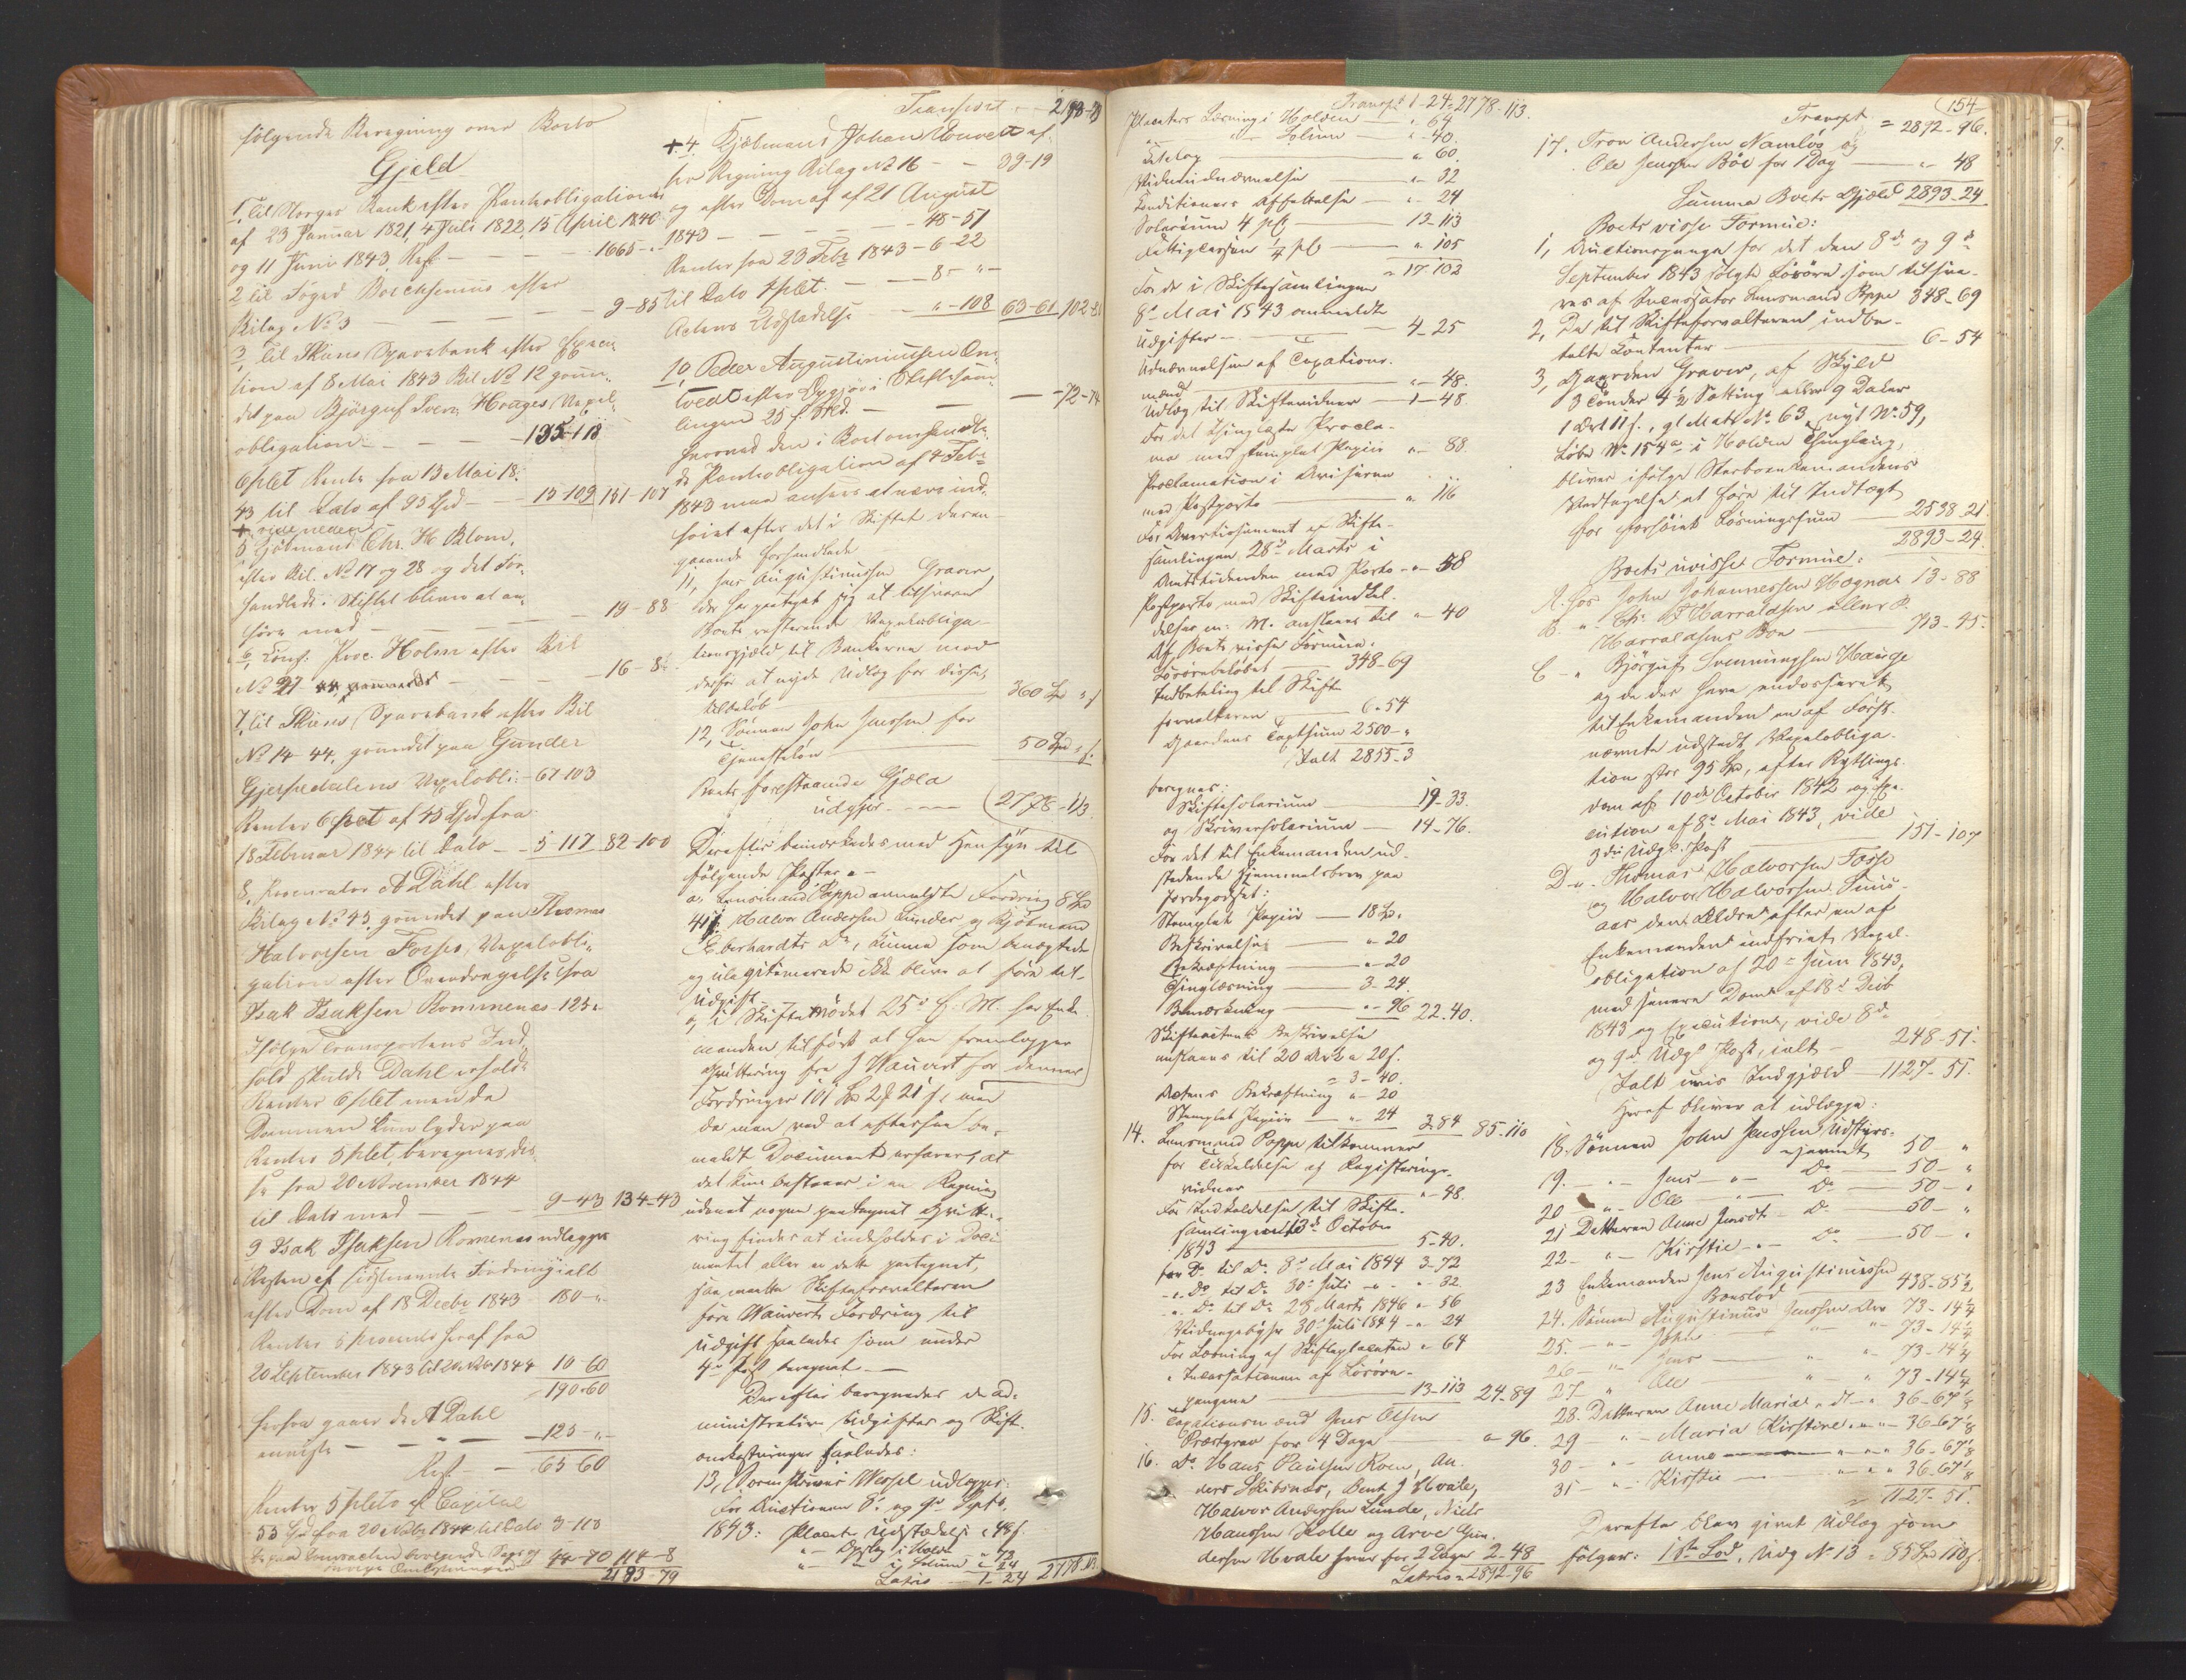 følgende Beregning over Boets
Gjeld
1, til Norges Bank efter Pantobligationer
af 23 Januar 1821, 4 Juli 1822, 15 April 1840
og 11 Juni 1843, Rest — 1665 - "
2 til Foged
Bilag No 3 — 9-85
3, til Skiens Sparebank efter Execu-
tion af 8 Mai 1843 Bil No 12 grun-
det paa Bjørguf Sven. Hauges Vexel-
obligation — 135-118
6 pCt Rente fra 13 Mai 18-
43 til Dato af 95 Spd — 15-109 151-107
+ vide neden
5 Kjøbmand Chr. H. Blom,
efter Bil. No 17 og 28 og det For-
handlede i Skiftet bliver at an-
føre med — 19-88
6, Conf. Proc. Holm efter Bil
No 27 — 16-8
7, til Skiens Sparebank efter Bil
No 14-44, grundet paa Gunder
Gjerpedalens Vexelobli:- 67-103
Renter 6 pCt af 45 Spd fra
18 Februar 1844 til Dato — 5-117 82-100
8, Procurator A Dahl efter
Bilag No 43, grundet paa Thomas
Halvorsen Fosses Vexelobli-
gation efter Overdragelse fra
Isak Isaksen Rommenæs 125-
Ifølge Transportens Ind-
hold skulde Dahl erholde
Renter 6 pCt men da
Dommen kun lyder paa
Renter 5 pCt, beregnes dis-
se fra 20 November 1844
til Dato med — 9-43 134-43
9 Isak Isaksen Romenæs udlægges
Resten af sidstnævnte Fordring ialt
efter Dom af 18 Decbr 1843 180-"-
Renter 5 procents heraf fra
20 September 1843 til 20 Nvbr 1844 10-60
190-60
herfra gaaer de A Dahl
125-"-
Rest — 65-60
Renter 5 pCto af Capital
55 Spd fra 20 Nvbr 1844 til Dato 3-118
44-70 114-8
2183-79
Transport — 2183-79
+ 4. Kjøbmand Johan Wauvert af
for Regning Bilag No 16 — 39-19
og efter Dom af 21 August
1843 — 48-57
Renter fra 23 Febr 1843 - 6-22
til Dato 4 pCt. — 8-"-
Actens Udstædelse — "-108 63-61 102-
10, Peder Augustinussen
tvedt efter Opgjør i Skiftesam-
lingen 25 f. Md. — 72-74
hvorved den i Boet omhandle-
de Pantobligation af 4 Febr
1843 maa ansees at være ind-
friet efter det i Skiftet deran-
gaaende forhandlede
11, Jens Augustinussen Graver
der har paataget sig at tilsvare
Boets resterende Vexelobliga-
tionsgjæld til Bankerne med
derfor at nyde Udlæg for disses
Beløb — 360 Spd " s
12, Sønnen John Jenssen for
Tjenesteløn — 50 Spd " s
Boets forestaaende Gjæld
udgjør — 2778-113
Derefter bemærkedes med Hensyn til
følgende Poster:-
a, Lensmand Poppe anmeldte Fordring 8 Spd
41 s. Halvor Andersen Lunde og Kjøbmand
Eberhardts Do, kunne som benægtede
og ulegitimerede ikke blive at føre til
Udgift.
b, i Skiftemødet 25de f. M. har Enke-
manden tilført at han fremlægger
Qvittering fra J Wauvert for dennes
Fordringer 101 Spd 2 # 21 s, men
da man ved at eftersee be-
meldt Document erfarer, at
det kun bestaaer i en Regning
udenat nogen paategnet Qvitte-
ring findes at indeholdes i Docu-
mentet eller er dette paategnet,
saa maatte Skifteforvalteren
føre Wauverts Fordring til
Udgift saaledes som under
4de Post beregnet.—
Derefter beregnedes de ad-
ministrative Udgifter og Skift-
omkostninger saaledes:
13, Sorenskriver Wessel udlægges:
For Auctionen 8de og 9de Septbr.
1843: Placaters Udstædelse " 48 s.
" - Opslag i Holden " 72
" — " i Solum " 24
Latus 1-24 2778-113
Transpt 1-24 = 2778-113.
Placaters Læsning i Holden — " 64
" — Solum — " 40.
— " 60.
Vidneudnævnelse — " 32
Conditioners Affattelse — " 24
Solarium 4 pCt — 13-113
Fattigcassen ¼ pCt — " 105
= 17-102
For de i Skiftesamlingen
8de Mai 1843 anmeldte
Udgifter — 4-25
Udnævnelsen af Taxations-
mænd — "-48.
Udlæg til Skiftevidner — 1-48.
For det thinglæste Procla-
ma med stemplet Papiir — "- 88.
Proclamation i Aviserne
med Postporto — " 116
For Avertissement af Skifte-
samlingen 28de Marts i
Amtstidenden med Porto - " 58
Postporto med Skifteindkal-
delser m: M. ansættes til " 40
Af Boets visse Formue:
Løsørebeløbet — 348-69
Indbetaling til Skifte-
forvalteren — 6-54
Gaardens Taxtsum 2500-"
Ialt 2855-3
beregnes:
Skiftesolarium — 19-33.
og Skriversolarium — 14-76.
For det til Enkemanden ud-
stedende Hjemmelsbrev paa
Jordegodset:
Stemplet Papiir — 18 Spd.
Beskrivelse — "-20
Bekræftning — "-20
Thinglæsning — 3-24.
Bemærkning — "-96 22-40.
Skifteactens Beskrivelse
ansættes til 20 Ark a 20 s.
= 3-40.
Actens Bekræftning "-20
Stemplet Papiir — "-24 3-84 85-110
14. Lensmand Poppe tilkommer
for Tilkaldelse af Registrerings-
vidner — "-48.
For Indkaldelse til Skifte-
samlingen 13de October
1843 — 5-40.
for Do til Do 8de Mai 1844 3-72
" Do til Do 30te Juli " " - 32.
" Do til Do 28 Marts 1846 " 56
Vidnegebyhr 30te Juli 1844 - " 24
For Læsning af Skifteplacaten " 64
" Incassationen af Løsøre-
pengene — 13-113 24-89
15. Taxationsmænd Jens Olsen
Præstgrav for 4 Dage — " 96.
16. Do Hans Paulsen Roen, An-
ders Skibsnæs, Bent J Hvale,
Halvor Andersen Lunde, Niels
Hanssen Kolle og Arve Gun-
dersen Hvale hver for 2 Dage 2-48
Latus = 2892-96
154
Transpt = 2892-96.
17. Tron Andersen Namløs og
Ole Jenssen Bøe for 1 Dag — "- 48
Summa Boets Gjeld 2893-24
Boets visse Formue:
1, Auctionspenge for det den 8de og 9de
September 1843 solgte Løsøre som tilsva-
res af Incassator Lensmand Poppe 348-69
2, De til Skifteforvalteren indbe-
talte Contanter — 6-54
3, Gaarden Graver, af Skyld
3 Tønder 4½ Sætting eller 9 Daler
1 Ort 11 s., gl Matr No 63, nyt No 59,
Løbe No 154a i Holden Thinglaug,
bliver ifølge Sterboenkemandens
Vedtagelse at føre til Indtægt
for forhøiet Løsningssum — 2538-21.
2893-24
Boets uvisse Formue:
A. Hos John Johannessen Hognæs 13-88
B. " Chr. P Harraldsen eller P.
Harraldsens Boe — 713-45.
C - " Bjørguf Svenningsen Hauge
og de der have endosseret
til Enkemanden en af Først-
nævnte udstedt Vexelobliga-
tion stor 95 Spd, efter Rettings-
dom af 10de October 1842 og Exe-
cution af 8de Mai 1843, vide
3die Udgs. Post — 151-107
D - " Thomas Halvorsen Fosse
og Halvor Halvorsen
aas den Ældre efter en af
Enkemanden indfriet Vexel-
obligation af 20de Juni 1843,
med senere Dom af 18de Decb
1843 og Execution, vide 8de
og 9de Udgs Post, ialt — 248-51.
Ialt uvis Indgjæld — 1127-51.
Heraf bliver at udlægge:
18. Sønnen John Jenssen Udstyrs-
gjævnet 50 "
19. — " — Jens — " Do — 50 - "
20 — " - Ole — " Do — 50 - "
21 Datteren Anne Jensdt Do — 50 - "
22 - " — Kirstie — " Do — 50 - "
23 Enkemanden Jens Augustinussen
Boeslod — 438-85½
24. Sønnen Augustinus Jenssen Arv 73-14¼
25. — " - John — " " 73-14¼
26 - " Jens — " " 73-14¼
27 " Ole — " " 73-14¼
28. Datteren Anne Marie " dt " 36-67⅛
29 " — Maria Kirstine " " 36-67⅛
30 — " - Anne — " " 36-67⅛
31 - " - Kirstie — " " 36-67⅛
= 1127-51.
Derefter blev givet Udlæg som
følger: 1ste Lod, Udg No 13 = 85 Spd 110 s.